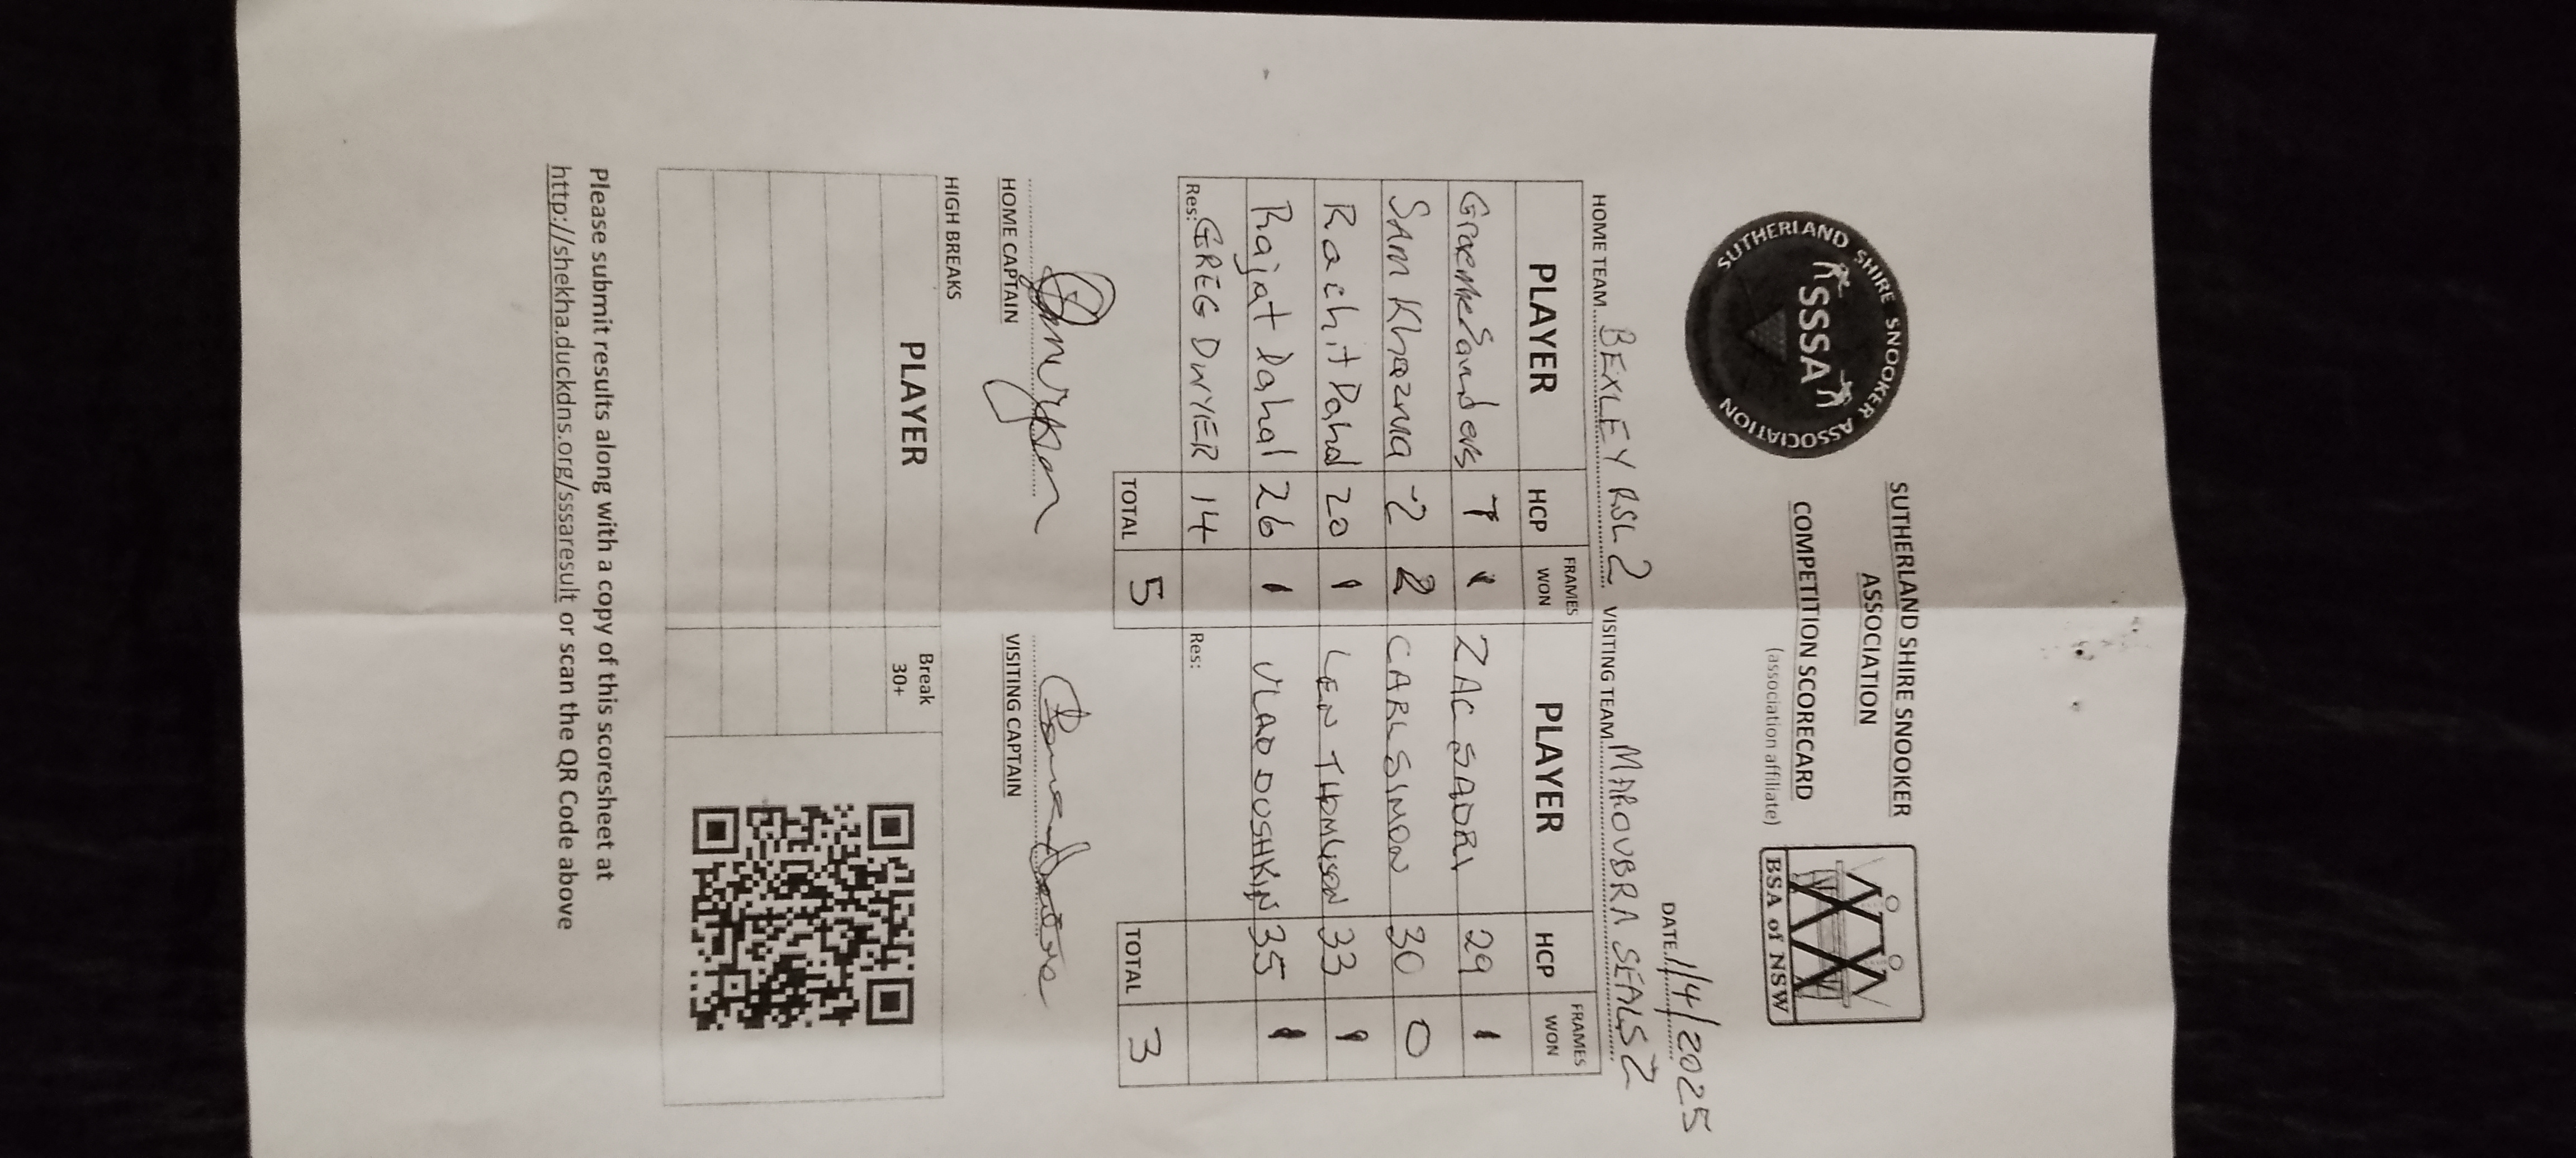 SUTHERLAND SHIRE SNOOKER ASSOCIATION
SSSA
SUTHERLAND SHIRE SNOOKER
ASSOCIATION
COMPETITION SCORECARD
(association affiliate)
BSA of NSW
DATE 1/4/2025
HOME TEAM BEXLEY RSL 2 VISITING TEAM MAROUBRA SEALS 2
PLAYER HCP FRAMES WON PLAYER HCP FRAMES WON
Graeme Saunders 7 1 ZAC SADRI 29 1
SAM Khazma -2 2 CARL SIMON 30 0
Rachit Dahal 20 1 LEN THOMSON 33 1
Rajat Dahal 26 1 VLAD DUSHKIN 35 1
Res: GREG DWYER 14 Res:
TOTAL 5 TOTAL 3
HOME CAPTAIN VISITING CAPTAIN
HIGH BREAKS
PLAYER Break 30+
Please submit results along with a copy of this scoresheet at
http://shekha.duckdns.org/sssaresult or scan the QR Code above